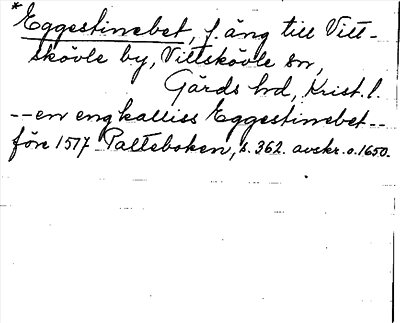 *Eggestinebet, f. äng till Vitt-
skövle by, Vittskövle sn,
Gärds hd, Krist. l.
--en eng kalliss Eggestinebet--
före 1517 Palteboken, s. 362. avskr. o. 1650.